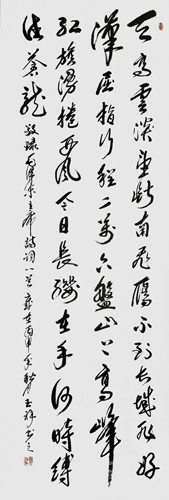 天高雲淡望斷南飛雁不到長城非好
漢屈指行程二萬六盤山上高峰
紅旗漫捲西風今日長纓在手何時縛
住蒼龍 敬録毛澤東主席詩詞一首歲在丙申